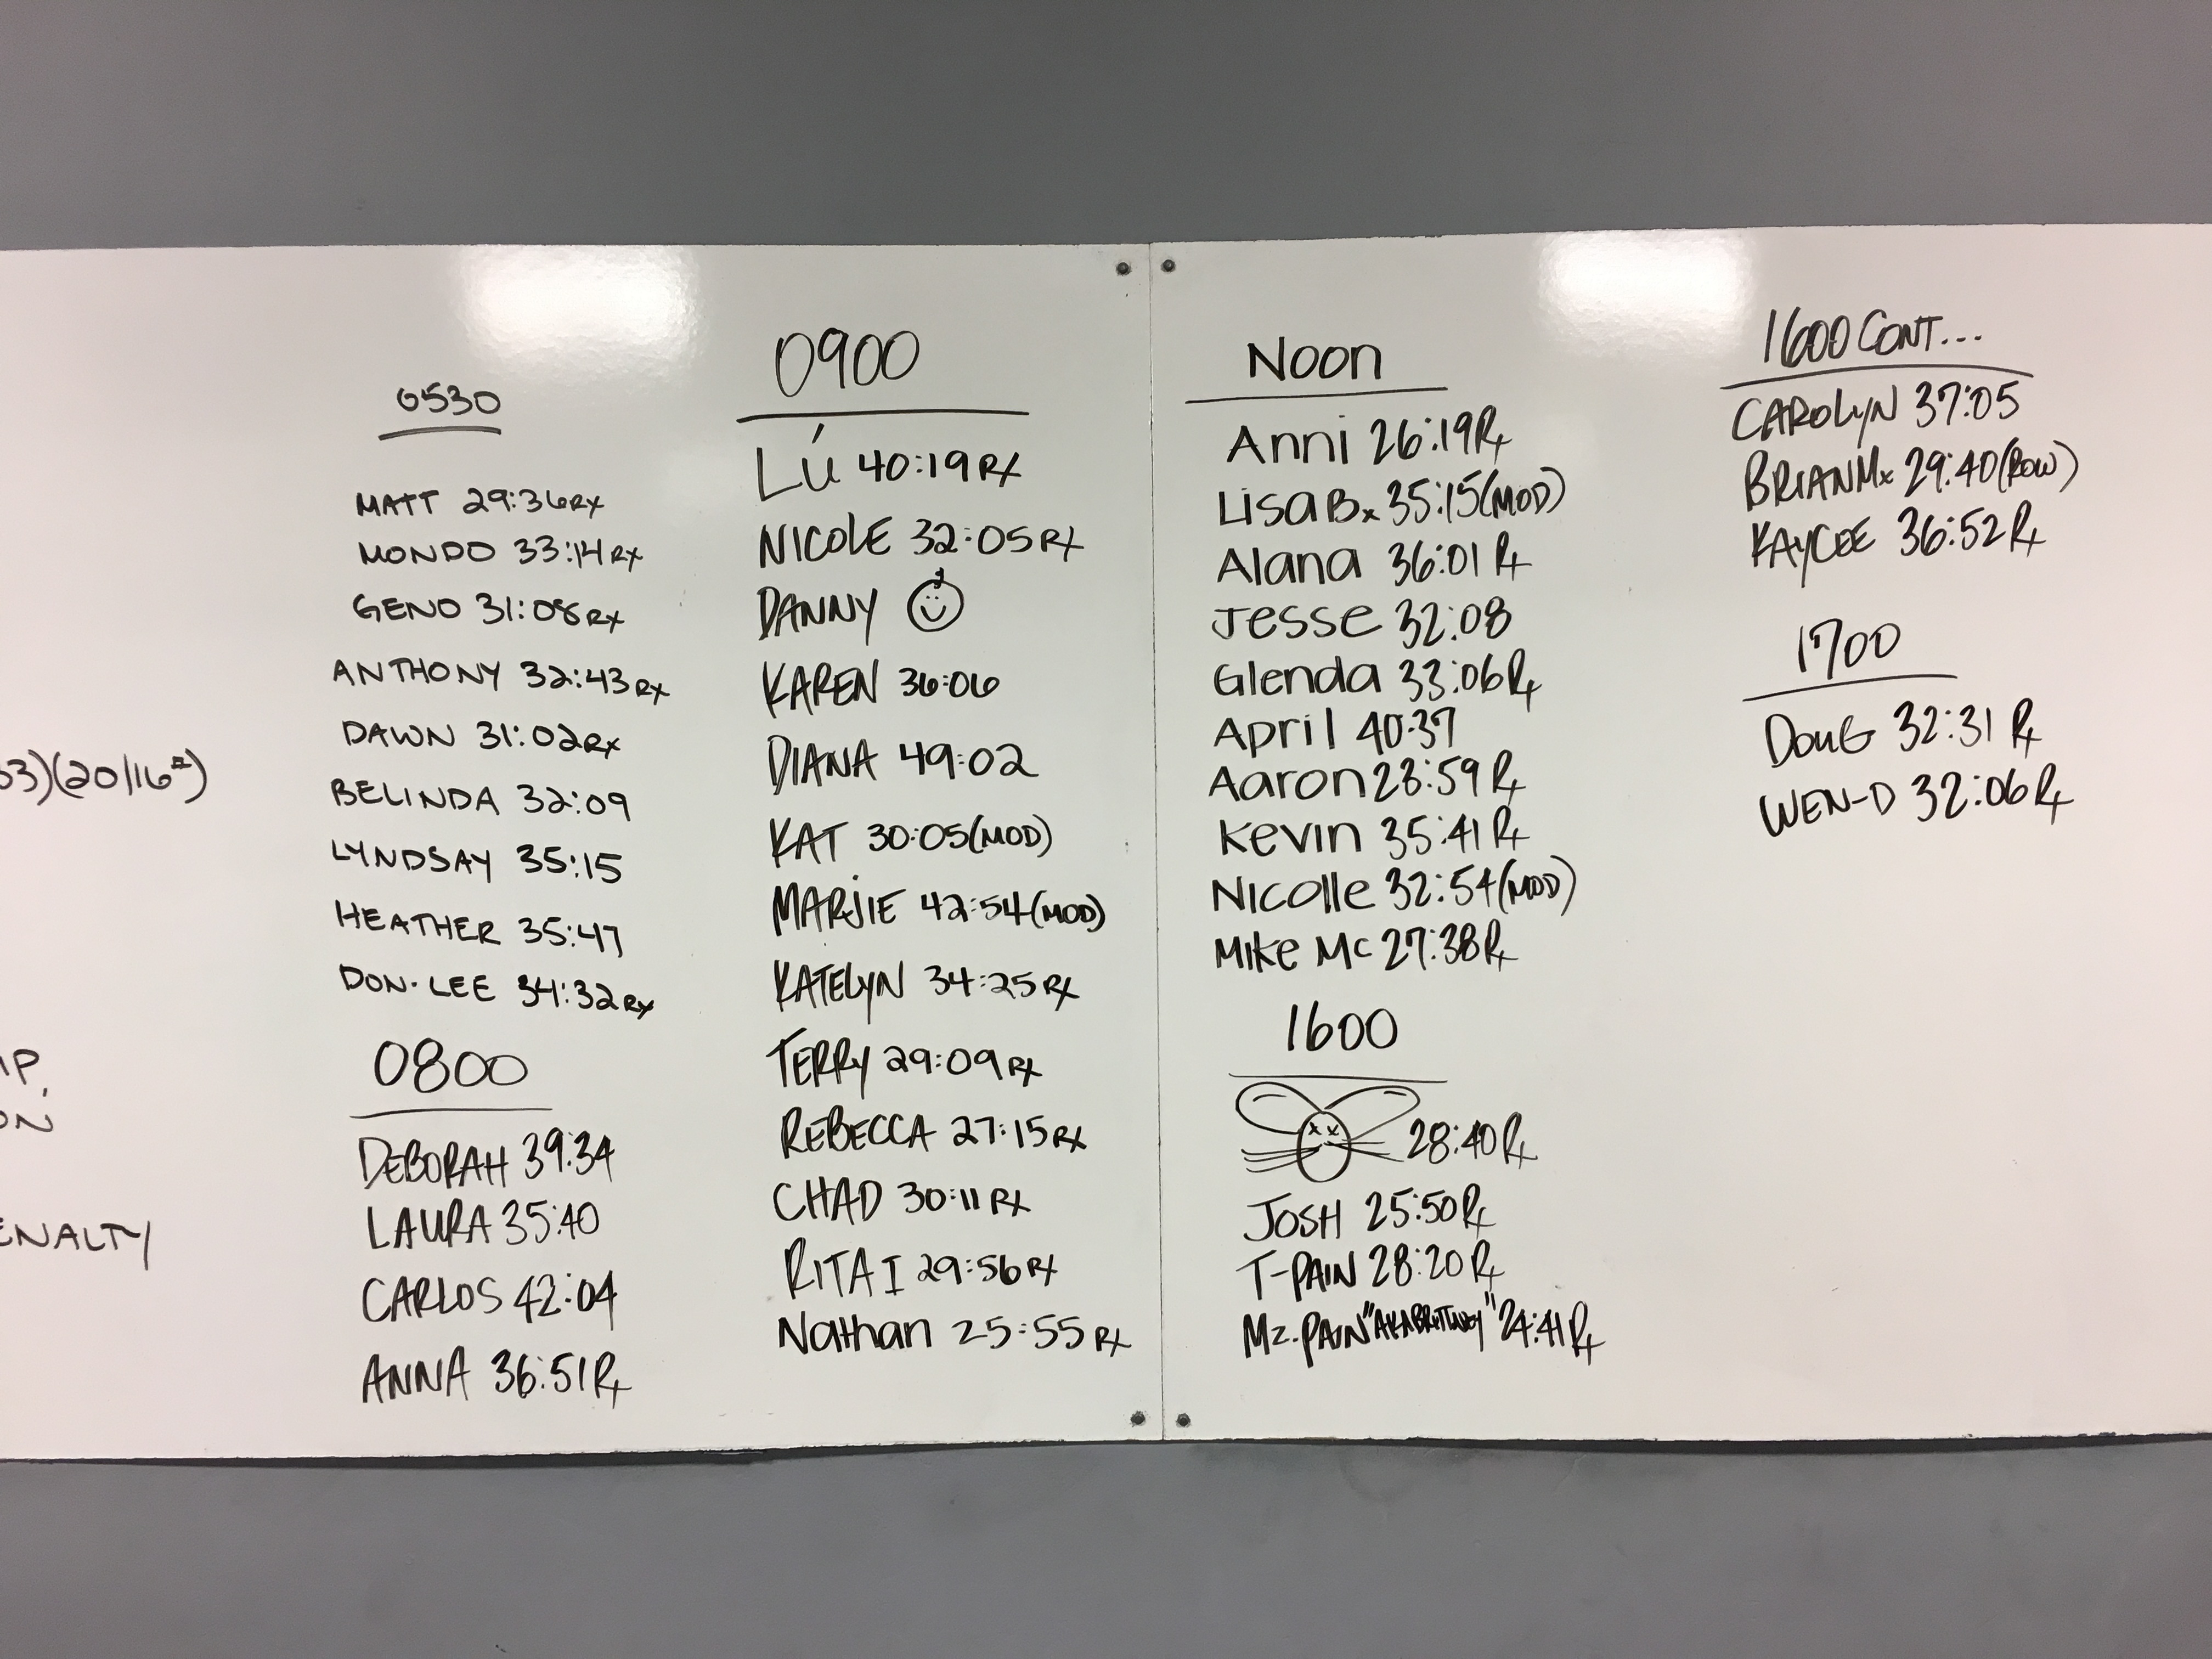 03)(20/16#)
IP,
ON
ENALTY
0530
MATT 29:36RX
MONDO 33:14RX
GENO 31:08RX
ANTHONY 32:43RX
DAWN 31:02RX
BELINDA 32:09
LYNDSAY 35:15
HEATHER 35:47
DON-LEE 34:32RX
0800
DEBORAH 39:34
LAURA 35:40
CARLOS 42:04
ANNA 36:51RX
0900
LÚ 40:19RX
NICOLE 32:05RX
DANNY
KAREN 36:06
DIANA 49:02
KAT 30:05(MOD)
MARJIE 42:54(MOD)
KATELYN 34:25RX
TERRY 29:09RX
REBECCA 27:15RX
CHAD 30:11RX
RITA I 29:56RX
Nathan 25:55RX
Noon
Anni 26:19Rx
Lisa Bx 35:15(MOD)
Alana 36:01 Rx
Jesse 32:08
Glenda 33:06Rx
April 40:37
Aaron 28:59 Rx
Kevin 35:41 Rx
Nicolle 32:54(MOD)
Mike Mc 27:38Rx
1600
28:40Rx
JOSH 25:50Rx
T-PAIN 28:20Rx
Mz. PAIN "AKA BRITTNEY" 24:41Rx
1600 CONT...
CAROLYN 37:05
BRIAN Mx 29:40(ROW)
KAYCEE 36:52Rx
1700
DOUG 32:31 Rx
WEN-D 32:06Rx